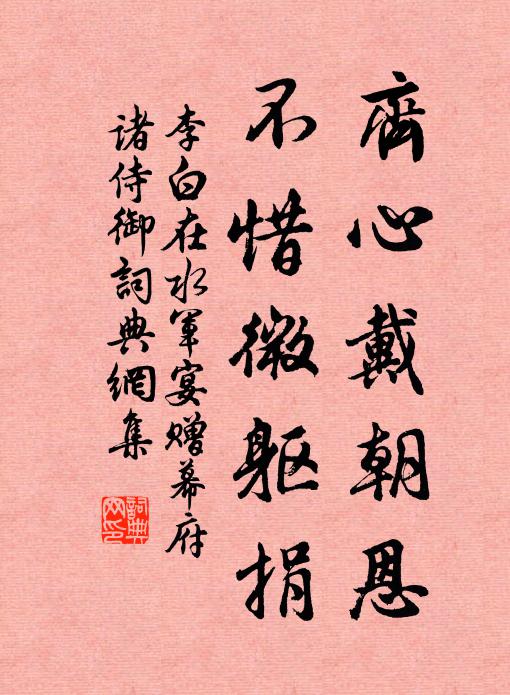 齊心戴朝恩
不惜微軀捐
李白在水軍宴贈幕府
諸侍御詞典網集
詞典網印